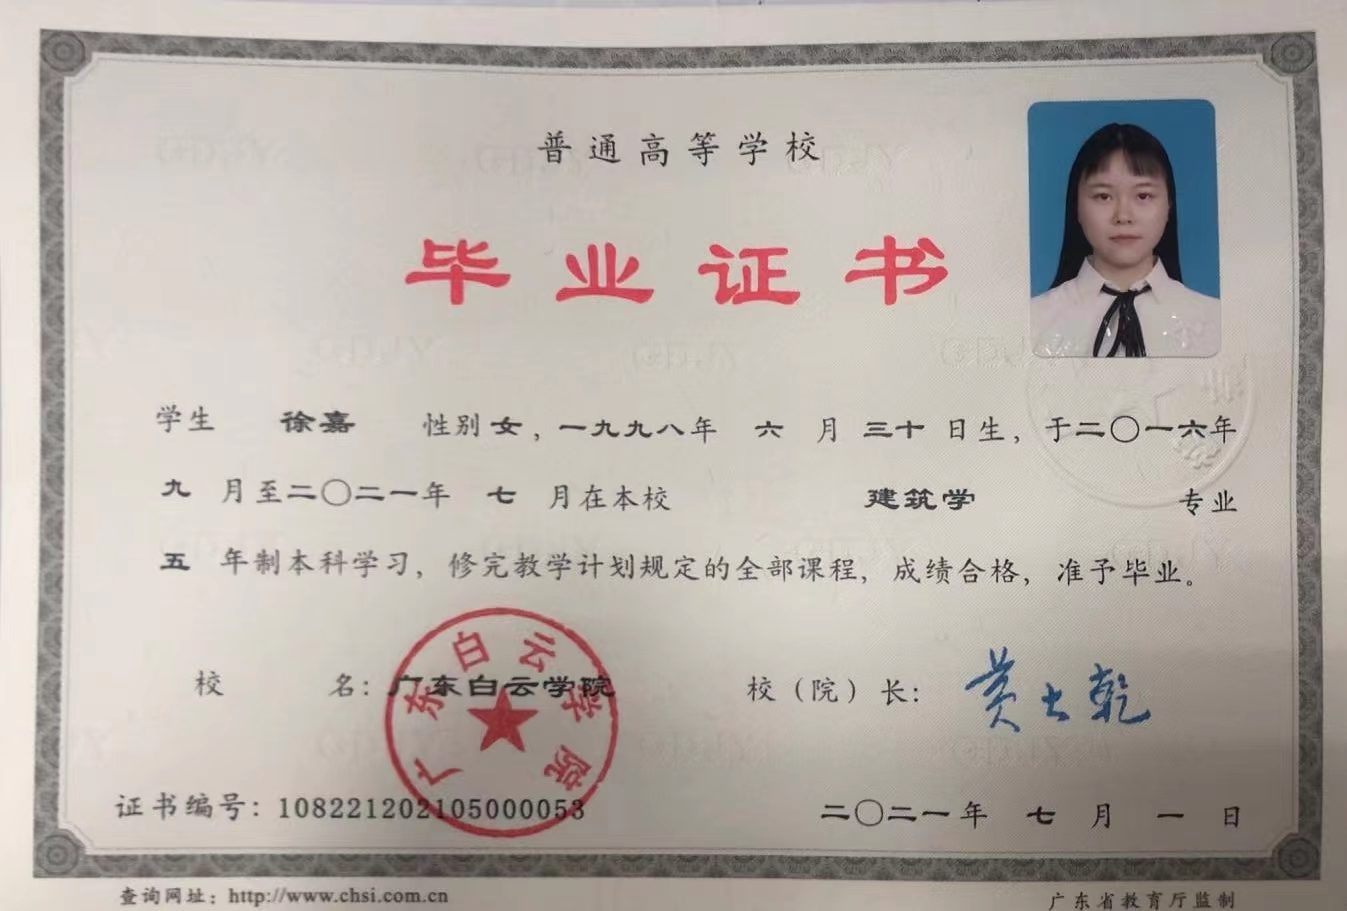 普通高等学校
毕业证书
学生 徐嘉 性别女，一九九八年 六 月 三十 日生，于二〇一六年
九 月至二〇二一年 七 月在本校 建筑学 专业
五 年制本科学习，修完教学计划规定的全部课程，成绩合格，准予毕业。
校 名：广东白云学院
广东白云学院
校（院）长：黄大乾
证书编号：108221202105000053
二〇二一年 七 月 一 日
查询网址：http://www.chsi.com.cn
广东省教育厅监制